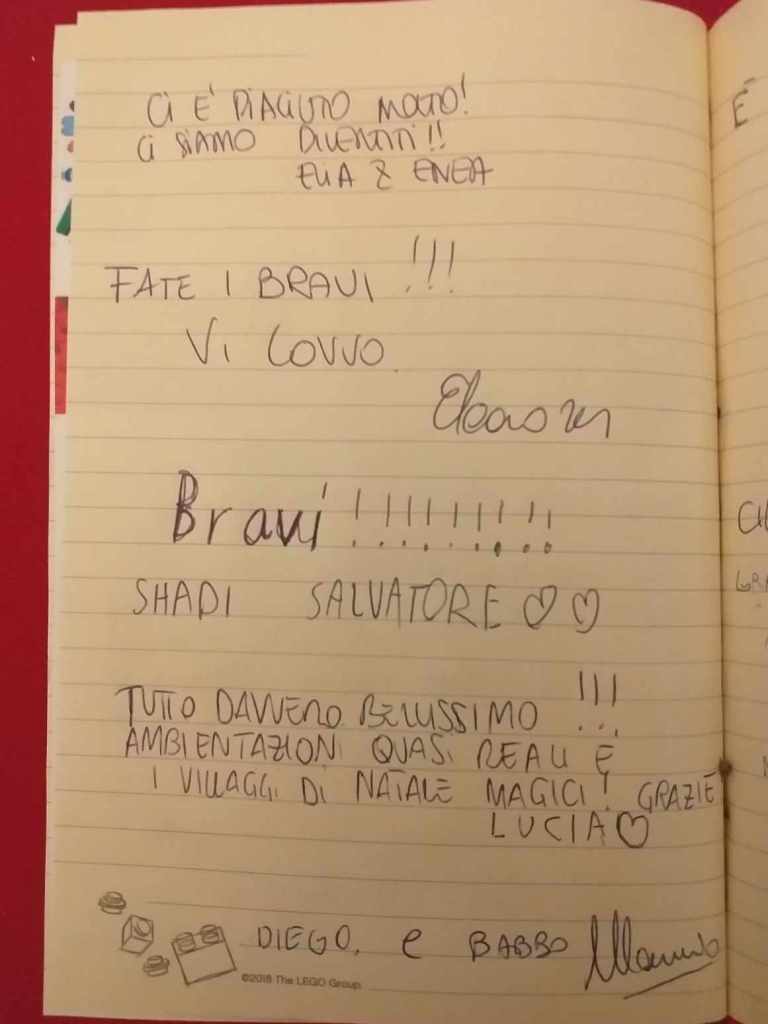 CI È PIACIUTO MOLTO!
CI SIAMO DIVERTITI!!
ELIA & ENEA
FATE I BRAVI !!!
VI LOVVO.
Eleonora
Bravi !!!!!!!!!
SHADI SALVATORE ♡ ♡
TUTTO DAVVERO BELLISSIMO !!!
AMBIENTAZIONI QUASI REALI E
I VILLAGGI DI NATALE MAGICI! GRAZIE
LUCIA♡
DIEGO, e BABBO
©2018 The LEGO Group
È